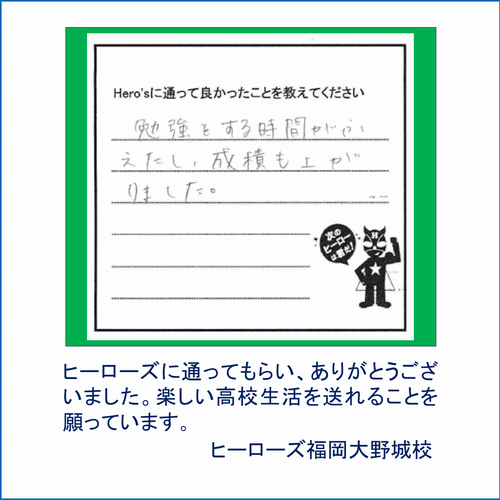 Hero'sに通って良かったことを教えてください
勉強をする時間がふ
えたし、成積も上が
りました。
次の
ヒーロー
は君だ!
H
ヒーローズに通ってもらい、ありがとうござ
いました。楽しい高校生活を送れることを
願っています。
ヒーローズ福岡大野城校